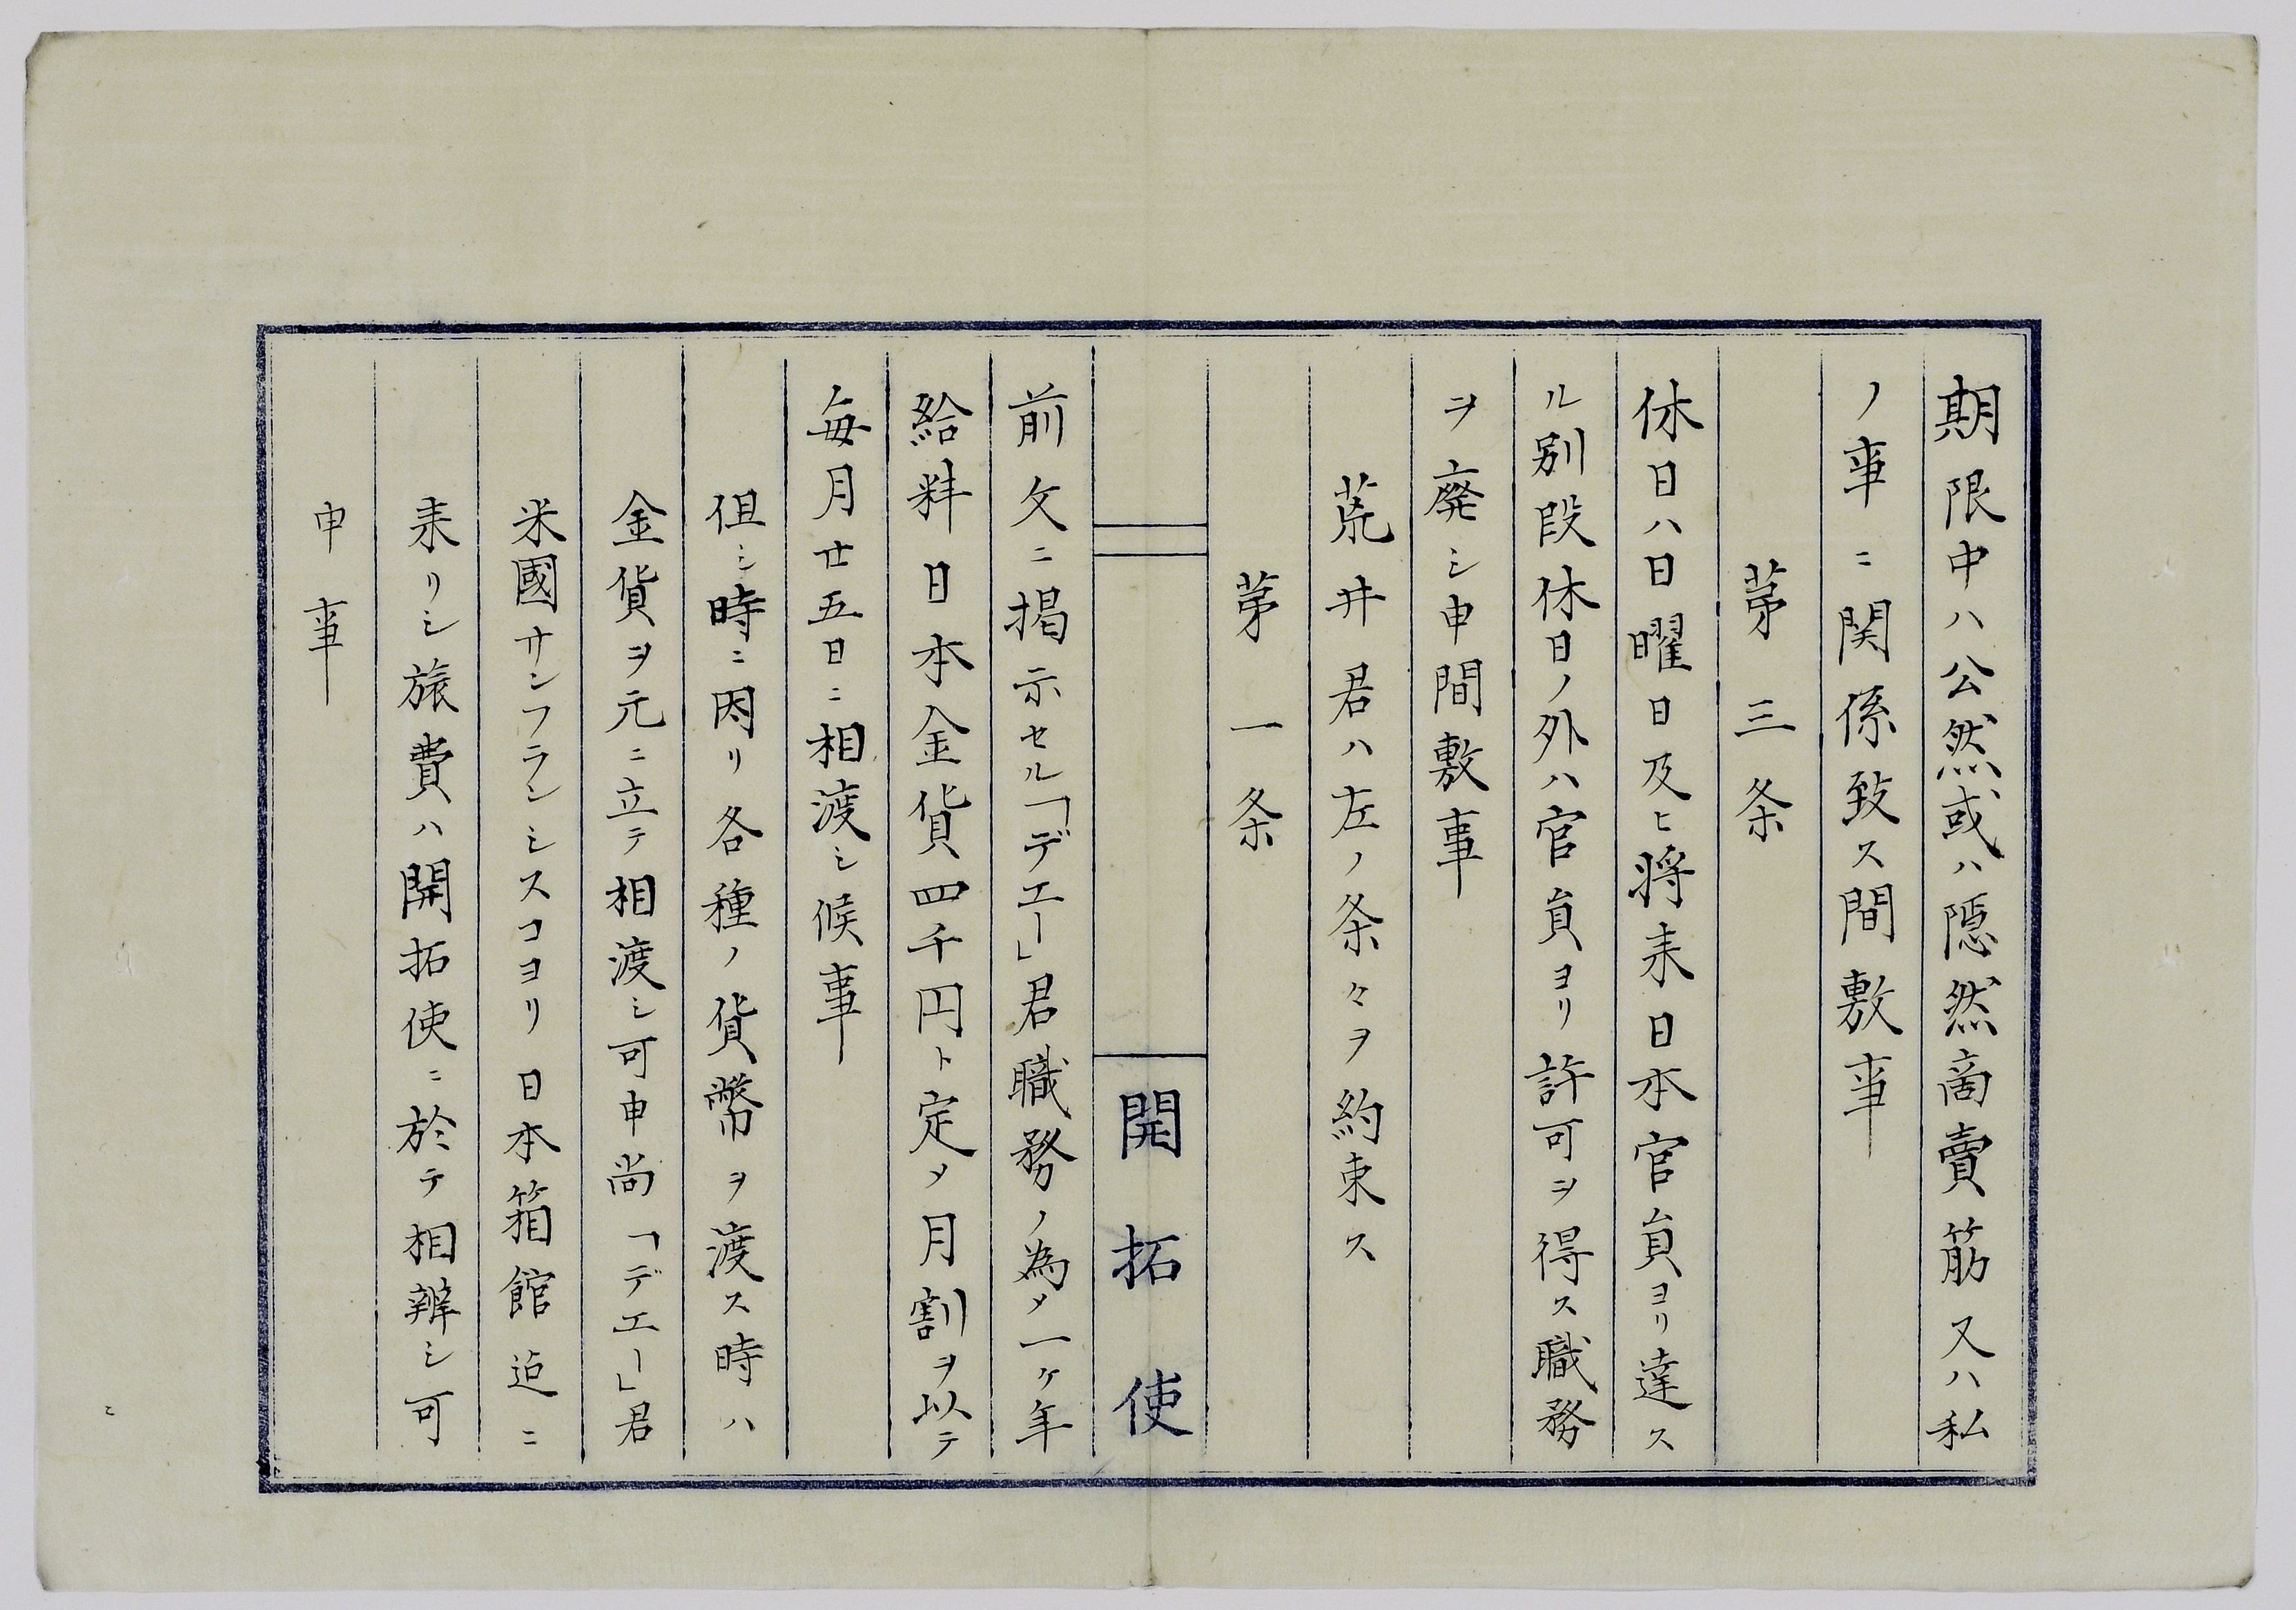 期限中ハ公然或ハ隠然商賣筋又ハ私
ノ事ニ関係致ス間敷事
第三条
休日ハ日曜日及ヒ将来日本官員ヨリ達ス
ル別段休日ノ外ハ官員ヨリ許可ヲ得ス職務
ヲ廃シ申間敷事
荒井君ハ左ノ条々ヲ約束ス
第一条
開拓使
前文ニ掲示セル「デエー」君職務ノ為メ一ケ年
給料日本金貨四千円ト定メ月割ヲ以テ
毎月廿五日ニ相渡シ候事
但シ時ニ因リ各種ノ貨幣ヲ渡ス時ハ
金貨ヲ元ニ立テ相渡シ可申尚「デエー」君
米國サンフランシスコヨリ日本箱館迠ニ
来リシ旅費ハ開拓使ニ於テ相辨シ可
申事